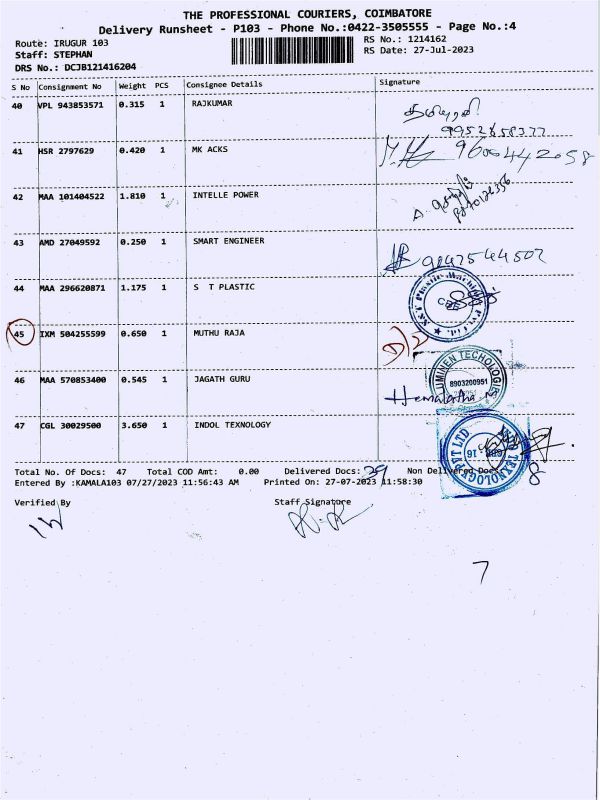 THE PROFESSIONAL COURIERS, COIMBATORE
Delivery Runsheet - P103 - Phone No.:0422-3505555 - Page No.:4
Route: IRUGUR 103
Staff: STEPHAN
DRS No.: DCJB121416204
RS No.: 1214162
RS Date: 27-Jul-2023
S No Consignment No Weight PCS Consignee Details Signature
40 VPL 943853571 0.315 1 RAJKUMAR
41 HSR 2797629 0.420 1 MK ACKS 9600442058
42 MAA 101404522 1.810 1 INTELLE POWER
43 AMD 27049592 0.250 1 SMART ENGINEER
44 MAA 296620871 1.175 1 S T PLASTIC
45 IXM 504255599 0.650 1 MUTHU RAJA
46 MAA 570853400 0.545 1 JAGATH GURU
8903200951
Hemalatha
47 CGL 30029500 3.650 1 INDOL TEXNOLOGY
Total No. Of Docs: 47 Total COD Amt: 0.00 Delivered Docs: 39 Non Delivered Docs: 8
Entered By :KAMALA103 07/27/2023 11:56:43 AM Printed On: 27-07-2023 11:58:30
Verified By Staff Signature
7